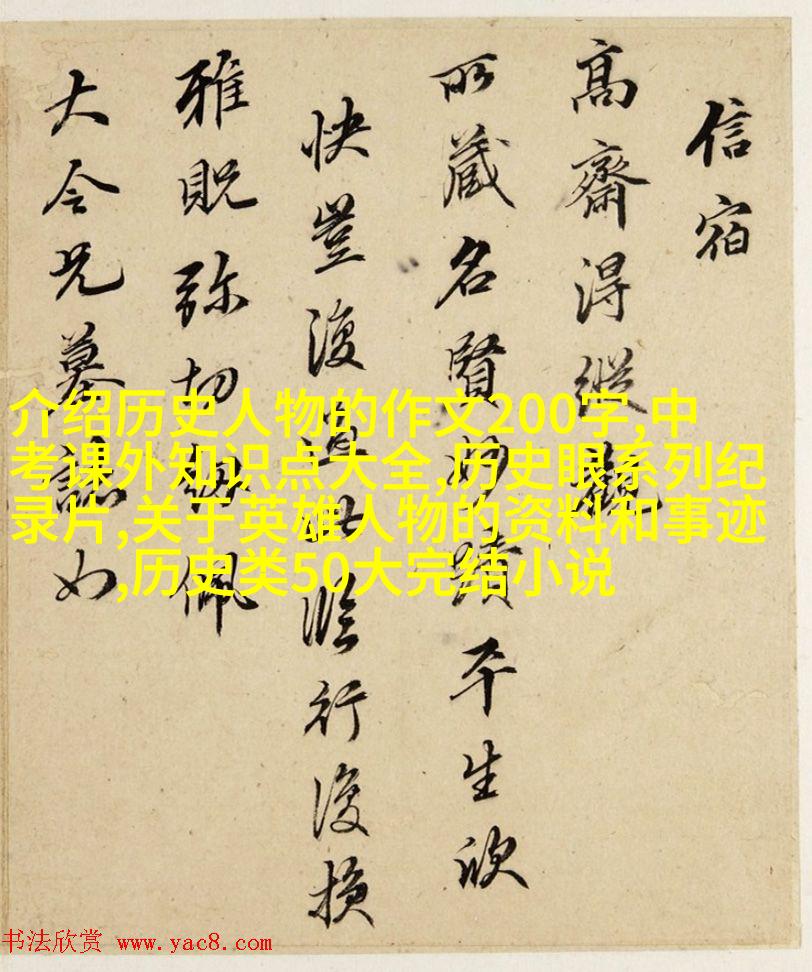 信宿
高齋得縱觀
所藏名賢妙蹟平生欣
快豈復過此臨行復損
雅貺弥切媿佩
大令兄墓誌如
介绍历史人物的作文200字,中
考课外知识点大全,历史眼系列纪
录片,关于英雄人物的资料和事迹
,历史类50大完结小说
书法欣赏 www.yac8.com